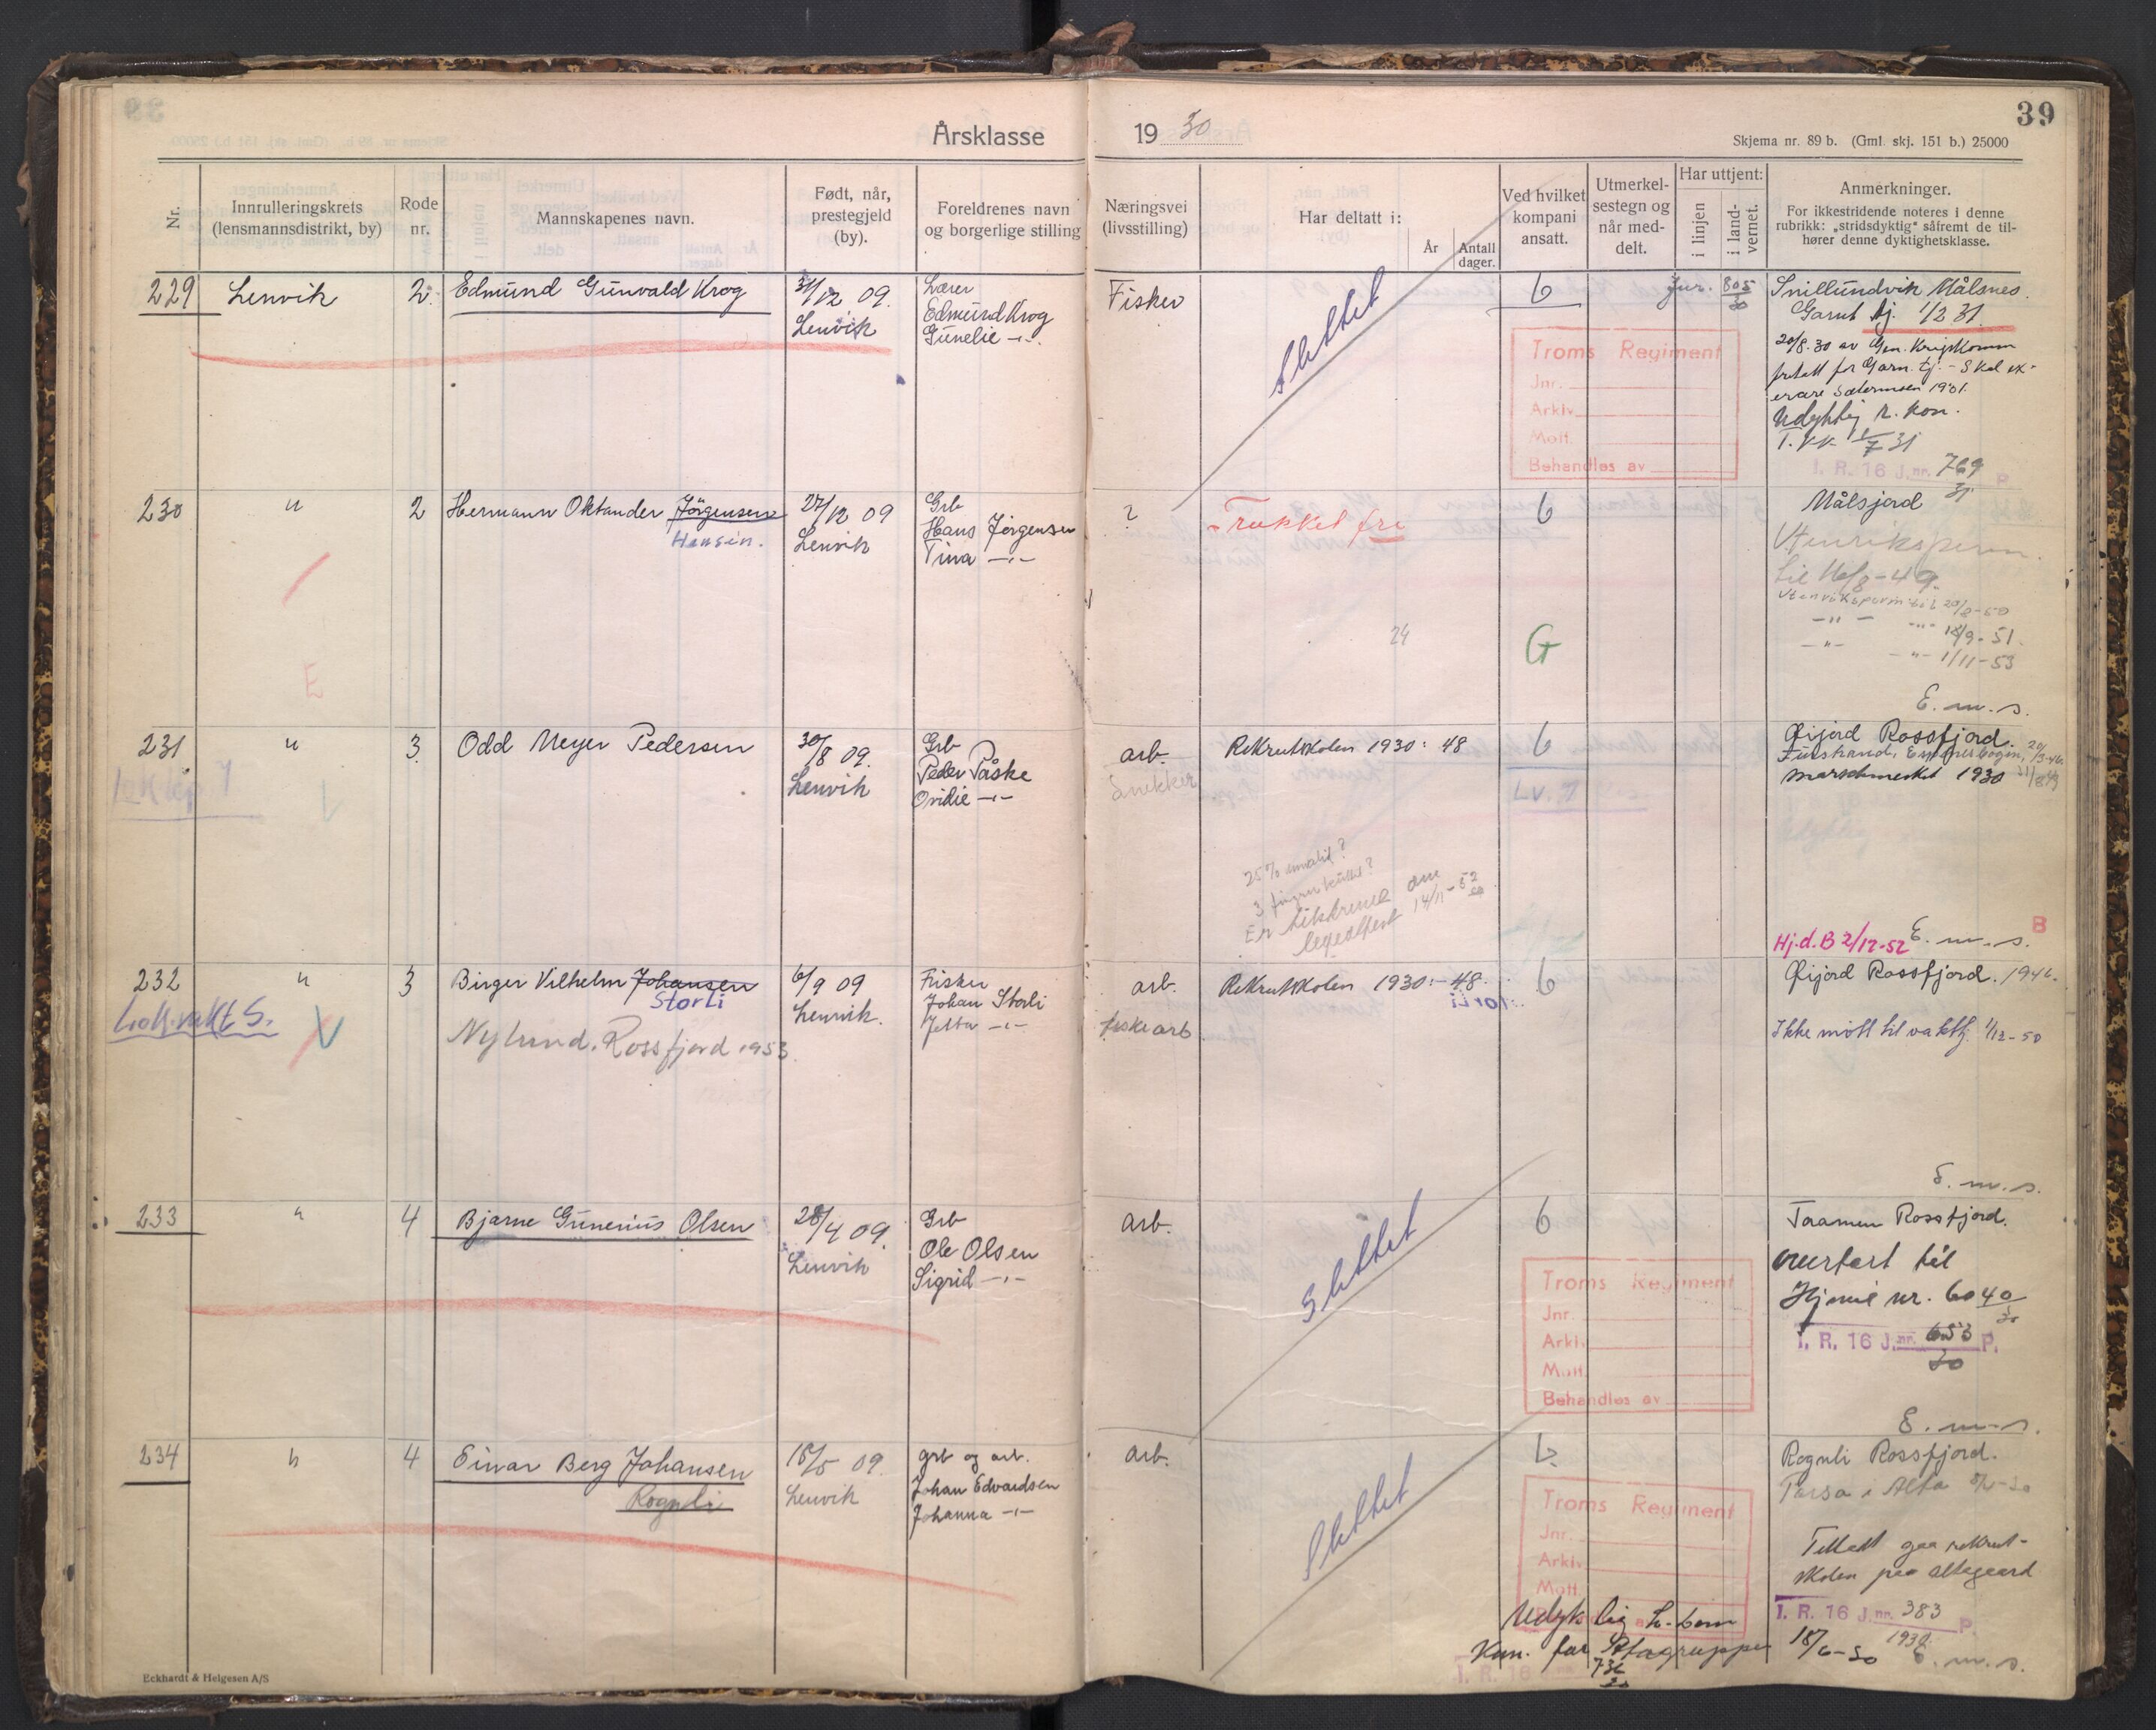 39
Årsklasse 1930
Skjema nr. 89 b. (Gml. skj. 151 b.) 25000
Nr.
Innrulleringskrets (lensmannsdistrikt, by)
Rode nr.
Mannskapenes navn.
Født, når, prestegjeld (by).
Foreldrenes navn og borgerlige stilling
Næringsvei (livsstilling)
Har deltatt i:
År
Antall dager.
Ved hvilket kompani ansatt.
Utmerkelsestegn og når meddelt.
Har uttjent:
i linjen
i landvernet.
Anmerkninger.
For ikkestridende noteres i denne rubrikk: „stridsdyktig" såfremt de tilhører denne dyktighetsklasse.
229 Lenvik 2. Edmund Gunvald Krog 31/12 09. Lærer Fisker 6 Jnr. 805/30
Lenvik Edmund Krog
Gunelie -"-
Slettet
Målsnes.
Garnt tj. 1/2 31
20/8.30 av Gen. Krigskomm
Garn. tj. - Skal
Sætermoen 1931.
Udyktig
7 31
Troms Regiment
Jnr.
Arkiv
Mott.
Behandles av
I. R. 16 J.nr. 769 P.
31
230 " 2 Hermann Oktander Jørgensen 27/12 09 Grb ? Trukket fri 6 Målsjord
Hansen. Lenvik Hans Jørgensen
Tina -"-
Utenriksperm.
til 16/8-49.
Utenrikspermit til 20/8-50
-"- -"- 18/9-51.
-"- -"- 1/11-53
E
24
G
E. m. s.
231 " 3 Odd Meyer Pedersen 30/8 09. Grb arb. Rekrutskolen 1930: 48 6 Øijord Rossfjord.
Lenvik Peder Påske Snekker
Ovidie -"-
LV.
marschmerket 1930
25% invalid?
3 fingrer
Er tilskrevet om
legeattest 14/11-52
Hj.d.B 2/12-52 E. m. s.
B
232 " 3 Birger Vilhelm Johansen 6/9 09 Fisker arb. Rekrutskolen 1930:- 48. 6 Øijord Rossfjord. 1946.
Storli Lenvik. Johan Storli
Nylund, Rossfjord 1953. -"- fiskearb
V
Ikke møtt til vakttj. 1/12-50
E. m. s.
233 " 4 Bjarne Gunerius Olsen 28/4 09. Grb arb. 6 Rossfjord.
Lenvik Ole Olsen
Sigrid -"-
Slettet
overført til
nr. 6040
30
Troms Regiment
Jnr.
Arkiv
Mott.
Behandles av
I. R. 16 J.nr. 653 P.
30
E. m. s.
234 " 4 Einar Berg Johansen 18/5 09. grb og arb. arb. 6. Rognli Rossfjord.
Rognli Lenvik Johan Edvardsen
Johanna -"-
Slettet
i Alta
Tillatt gaa rekrut-
skolen paa Altagaard
Troms Regiment
Jnr.
Arkiv
Mott.
I. R. 16 J.nr. 383 P.
1930.
Udyktig
Kun. for
18/6-30 E. m. s.
736
30
Eckhardt & Helgesen A/S